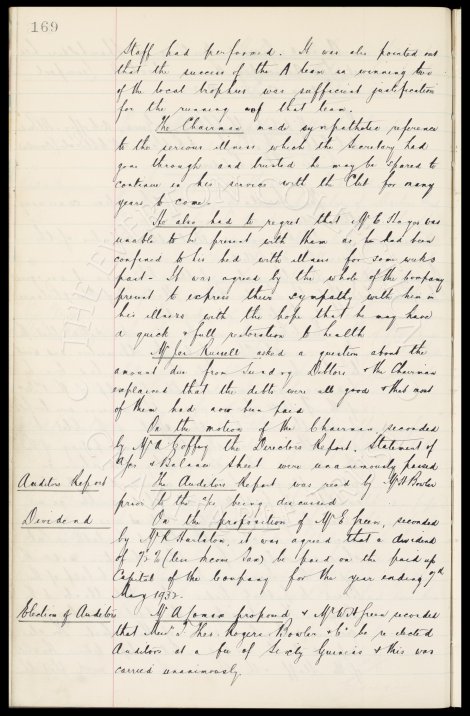 169
Staff had performed. It was also pointed out
that the success of the A team in winning two
of the local trophies was sufficient justification
for the running of that team.
The Chairman made sympathetic reference
to the serious illness which the Secretary had
gone through and trusted he may be spared to
continue in his service with the Club for many
years to come.
He also had to regret that Mr C Hayes was
unable to be present with them as he had been
confined to his bed with illness for some weeks
past. It was agreed by the whole of the Company
present to express their sympathy with him in
his illness with the hope that he may have
a quick & full restoration to health
Mr Joe Russell asked a question about the
amount due from Sundry Debtors & the Chairman
explained that the debts were all good & that most
of them had now been paid
On the motion of the Chairman, seconded
by Mr A the Directors Report, Statement of
& Balance Sheet were unanimously passed
Auditors Report The Auditors Report was read by Mr Bowler
prior to the a/cs being discussed
Dividend On the proposition of Mr E Green, seconded
by Mr R it was agreed that a dividend
of (less Income Tax) be paid on the paid up
Capital of the Company for the year ending 7th
May 1932.
Election of Auditors Mr A Coman proposed, & Mr W H Green seconded
that Thos. Rogers Bowler & Co be re elected
Auditors at a fee of Sixty Guineas & this was
carried unanimously.